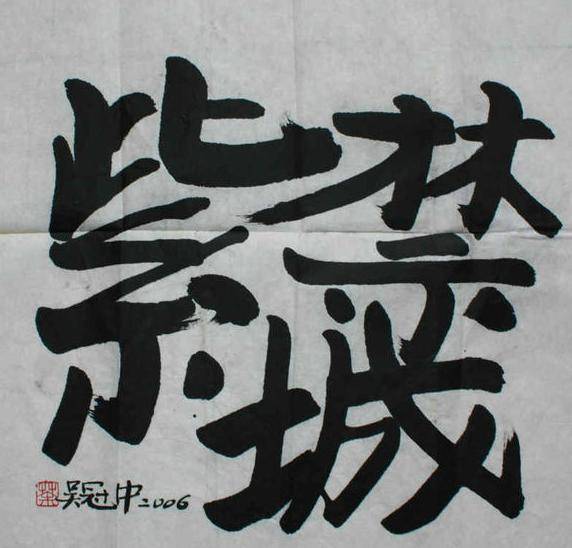 紫禁城
吴冠中2006
荼